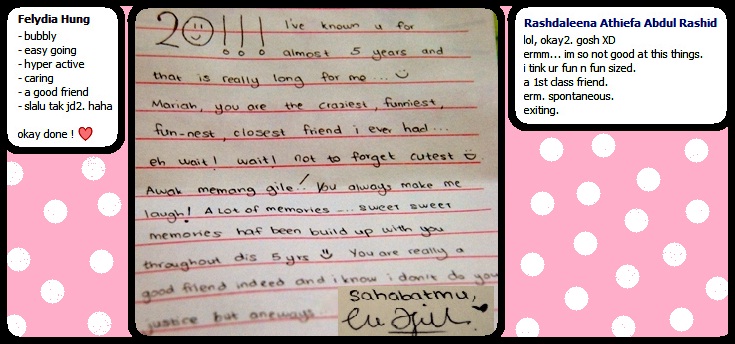 Felydia Hung
- bubbly
- easy going
- hyper active
- caring
- a good friend
- slalu tak jd2. haha
okay done !
20!!! I've known u for
almost 5 years and
that is really long for me ...
Mariah, you are the craziest, funniest,
fun-nest, closest friend i ever had...
eh wait! wait! not to forget cutest
Awak memang gile! You always make me
laugh! A lot of memories .... sweet sweet
memories haf been build up with you
throughout dis 5yrs You are really a
good friend indeed and i know i don't do you
justice but aneways
Sahabatmu,
Rashdaleena Athiefa Abdul Rashid
lol, okay2. gosh XD
ermm... im so not good at this things.
i tink ur fun n fun sized.
a 1st class friend.
erm. spontaneous.
exiting.